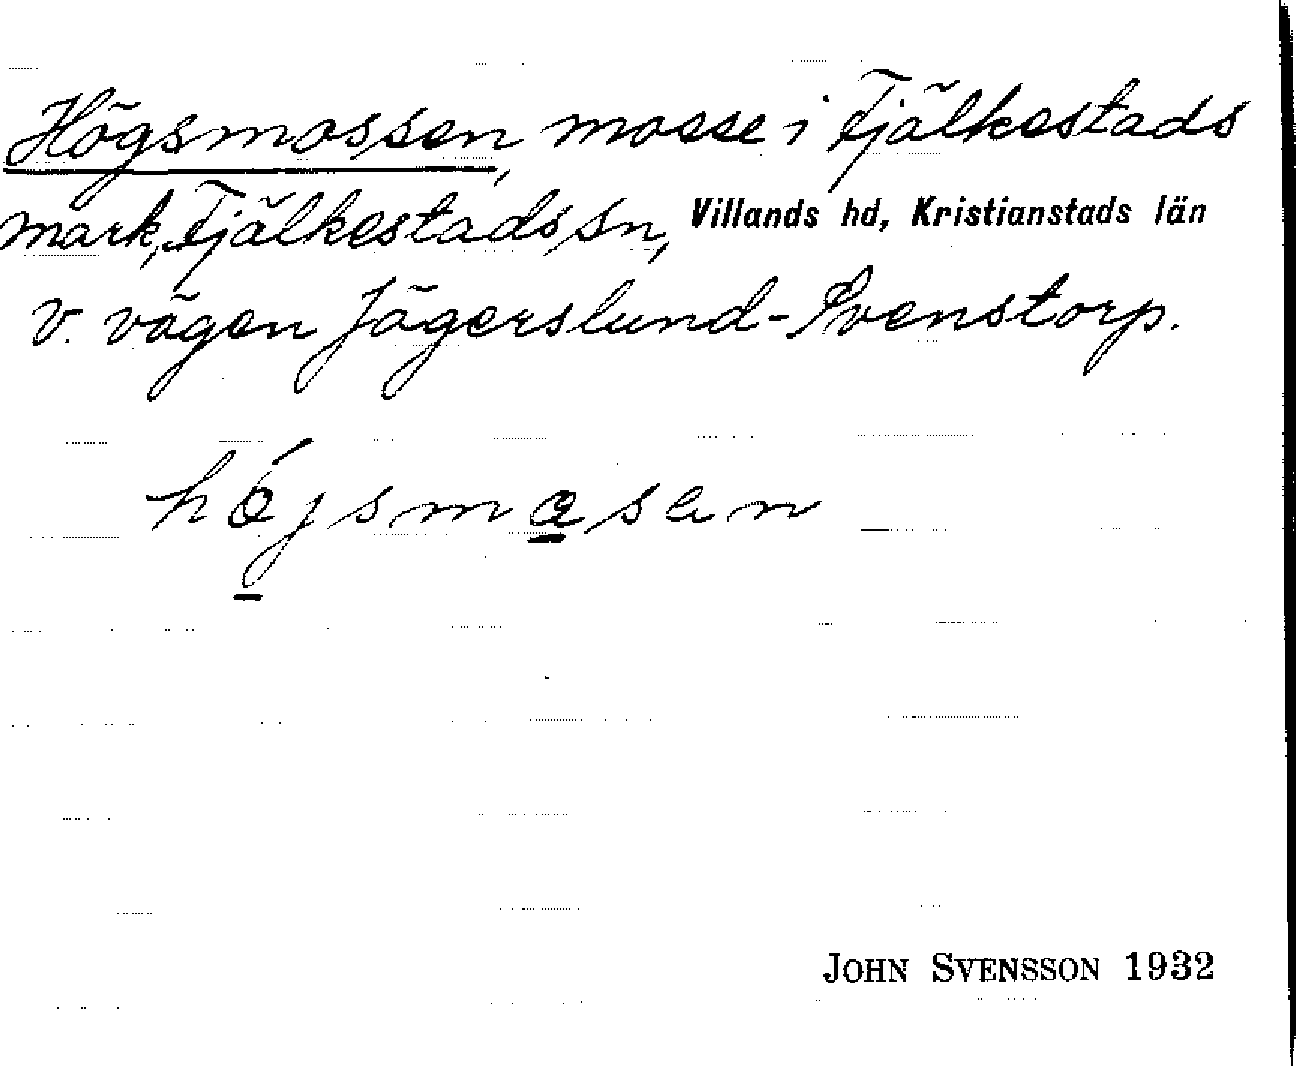 Högsmossen, mosse i Fjälkestads
mark, Fjälkestads sn, Villands hd, Kristianstads län
v. vägen Jägerslund-Svenstorp.
hó̱jsmo̱sen
JOHN SVENSSON 1932